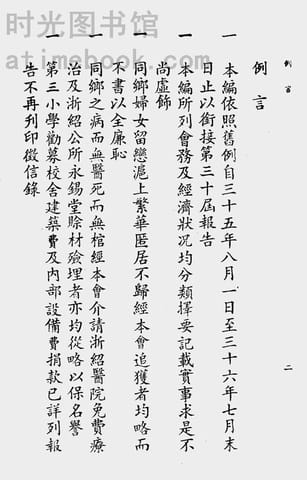 时光图书馆
atimebook.com
例言
例言
一 本編依照舊例自三十五年八月一日至三十六年七月末
日止以銜接第三十屆報告
一 本編所列會務及經濟狀况均分類擇要記載實事求是不
尚虛飾
一 同鄉婦女留戀滬上繁華匿居不歸經本會追獲者均略而
不書以全廉恥
一 同鄉之病而無醫死而無棺經本會介請浙紹醫院免費療
治及浙紹公所永錫堂賒材殮埋者亦均從略以保名譽
一 第三小學勸募校舍建築費及內部設備費捐款已詳列報
告不再刋印徵信錄
二